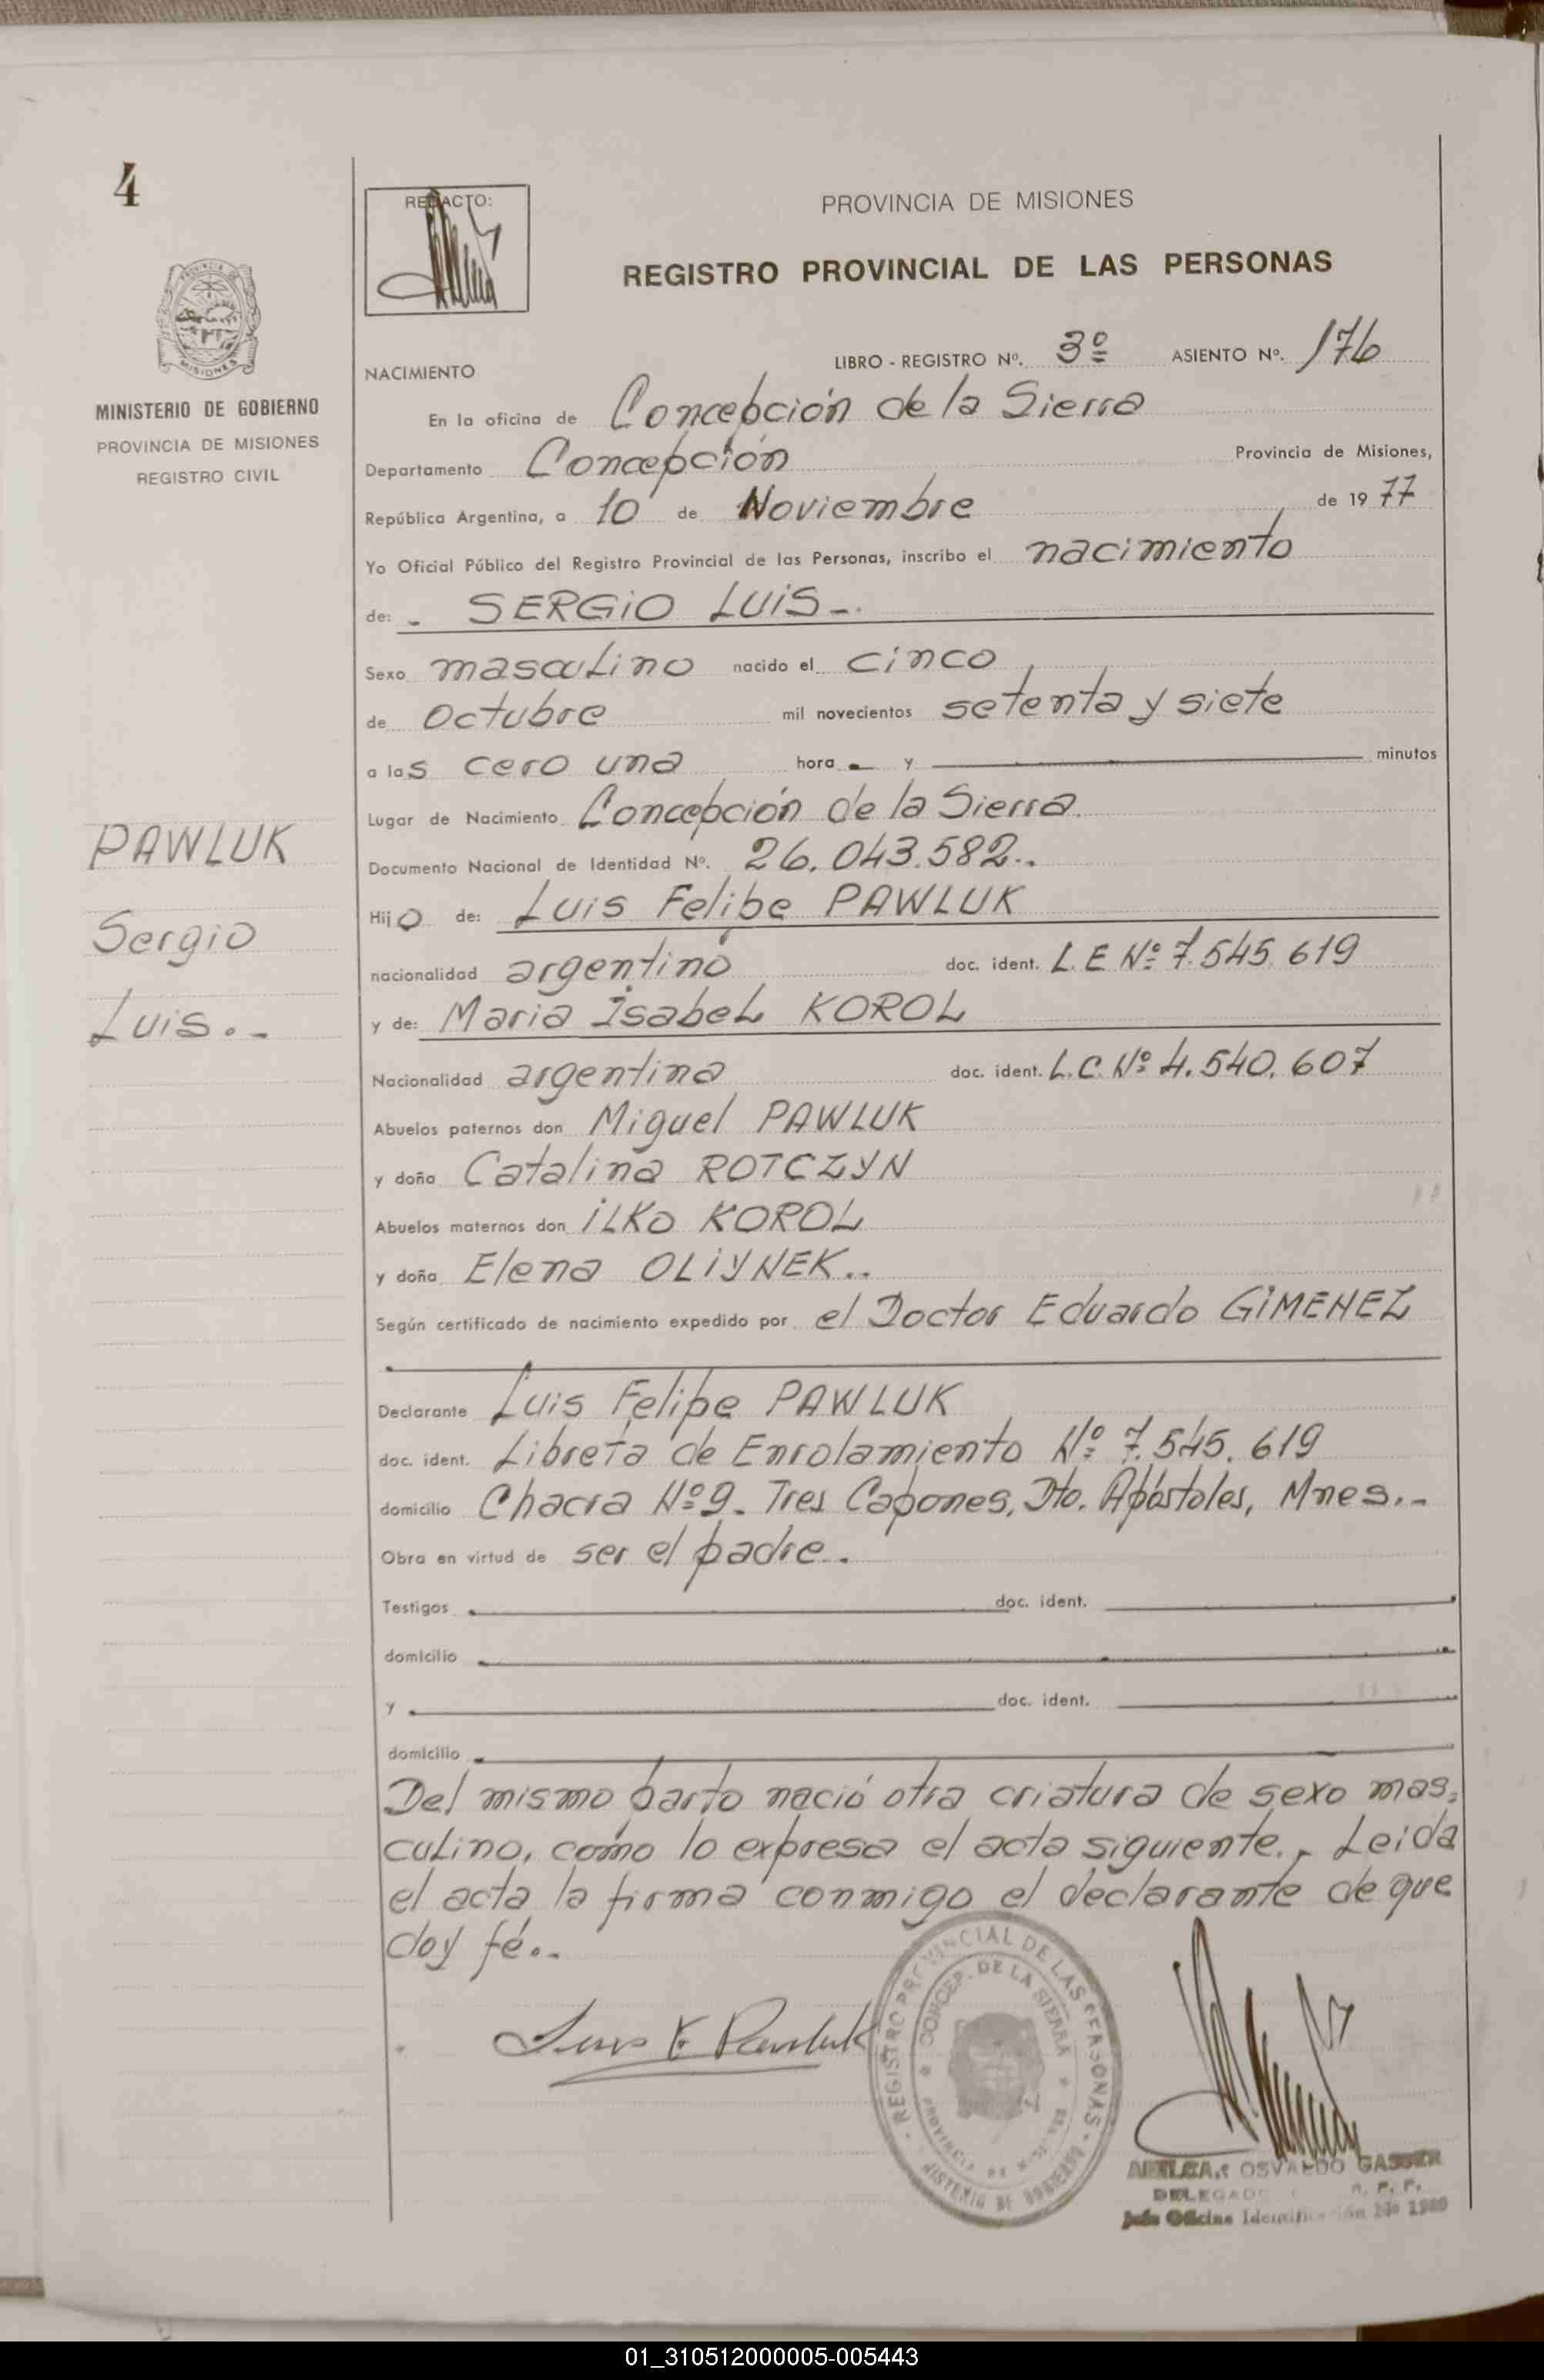 4
REDACTO:
PROVINCIA DE MISIONES
REGISTRO PROVINCIAL DE LAS PERSONAS
MISIONES
MINISTERIO DE GOBIERNO
PROVINCIA DE MISIONES
REGISTRO CIVIL
LIBRO - REGISTRO Nº. 3º ASIENTO Nº. 176
NACIMIENTO
En la oficina de Concepción de la Sierra
Departamento Concepción Provincia de Misiones,
República Argentina, a 10 de Noviembre de 1977
Yo Oficial Público del Registro Provincial de las Personas, inscribo el nacimiento
de: - SERGIO LUIS-.
Sexo masculino nacido el cinco
de octubre mil novecientos setenta y siete
a las cero una hora y minutos
Lugar de Nacimiento Concepción de la Sierra.
PAWLUK
Sergio
Luis.-
Documento Nacional de Identidad Nº. 26.043.582..
Hijo de: Luis Felipe PAWLUK
nacionalidad argentino doc. ident. L.E Nº 7.545.619
y de: Maria Isabel KOROL
Nacionalidad argentina doc. ident. L.C. Nº 4.540.607
Abuelos paternos don Miguel PAWLUK
y doña Catalina ROTCZYN
Abuelos maternos don ILKO KOROL
y doña Elena OLIYNEK..
Según certificado de nacimiento expedido por el Doctor Eduardo GIMENEZ
Declarante Luis Felipe PAWLUK
doc. ident. Libreta de Enrolamiento Nº 7.545.619
domicilio Chacra Nº 9. Tres Capones, Dto. Apóstoles, Mnes.-
Obra en virtud de ser el padre..
Testigos doc. ident.
domicilio
y doc. ident.
domicilio
Del mismo parto nació otra criatura de sexo mas-
culino, como lo expresa el acta siguiente.- Leida
el acta la firma conmigo el declarante de que
doy fé..
Luis F. Pawluk
REGISTRO PROVINCIAL DE LAS PERSONAS
CONCEP. DE LA SIERRA
PROVINCIA DE MISIONES
MINISTERIO DE GOBIERNO
OSVALDO GASSER
DELEGADO R. P. P.
Jefe Oficina Identificación
01_310512000005-005443